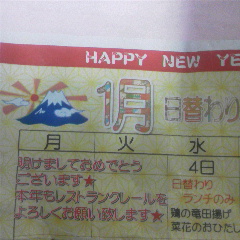 HAPPY NEW YE
1月 日替わり
月 火 水
明けましておめでとう
ございます★
本年もレストランクレールを
よろしくお願い致します★
4日
日替わり
ランチのみ
鶏の竜田揚げ
菜花のおひたし